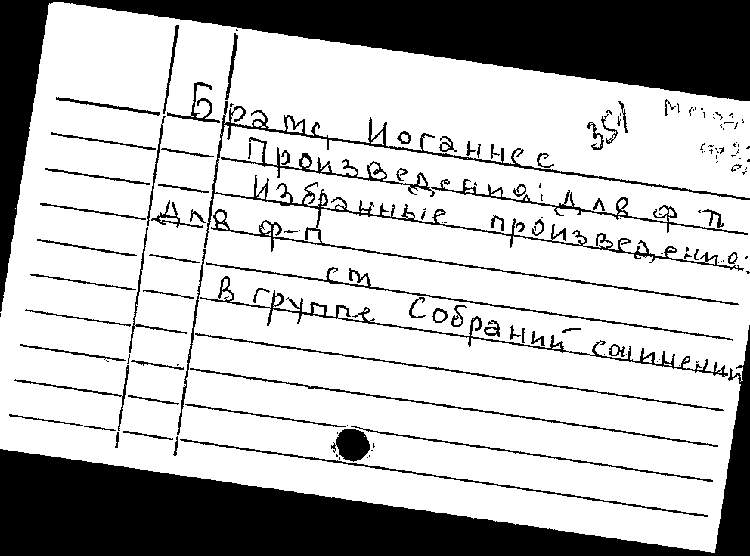 Брамс, Иоганнес
351
Произведения: для ф п
Избранные произведения:
для ф-п
cm
в группе Собраний сочинений